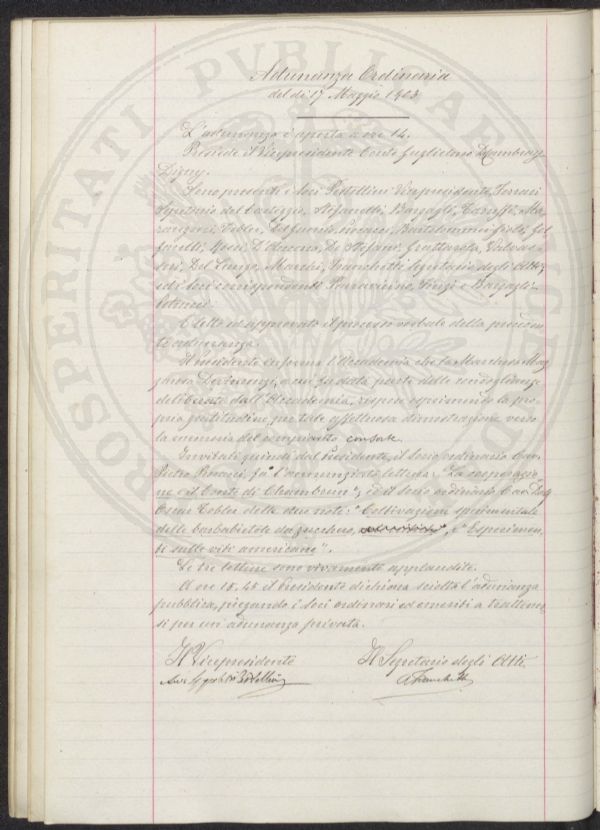 PROSPERITATI PVBLICAE
Adunanza Ordinaria
del dì 17 Maggio 1903
L'adunanza è aperta a ore 14.
Presiede il Vicepresidente Conte Guglielmo Cambray
Digny.
Sono presenti i Soci Pestellini Vicepresidente, Ferrari
Segretario del Carteggio, Stefanelli, Bargagli, Caruso,
Tobler, Bartolommei Gioli,
De Stefani, Grattarola,
Del Lungo, Marchi, Franchetti Segretario degli Atti,
ed i Soci corrispondenti Ravà e Bargagli-
Petrucci.
È letto ed approvato il processo verbale della preceden
te adunanza.
Il Presidente informa l'Accademia che la Marchesa
a cui fu data parte delle condoglianze
deliberate dall'Accademia, rispose esprimendo la pro
pria gratitudine per tale affettuosa dimostrazione verso
la memoria del compianto consorte.
Invitati quindi dal Presidente, il Socio ordinario Cav.
Pietro fa l'annunziata lettura: "La cooperazio
ne e il Conte di Chambrun"; ed il Socio ordinario Cav. Dott.
Oscar Tobler delle due note: "Coltivazioni sperimentali
delle barbabietole da zucchero, e "Esperienze
sulle viti americane".
Le tre letture sono vivamente applaudite.
A ore 15.45 il Presidente dichiara sciolta l'adunanza
pubblica, pregando i Soci ordinari ed emeriti a trattener
si per un'adunanza privata.
Il Vicepresidente
Il Segretario degli Atti.
Pestellini
A Franchetti